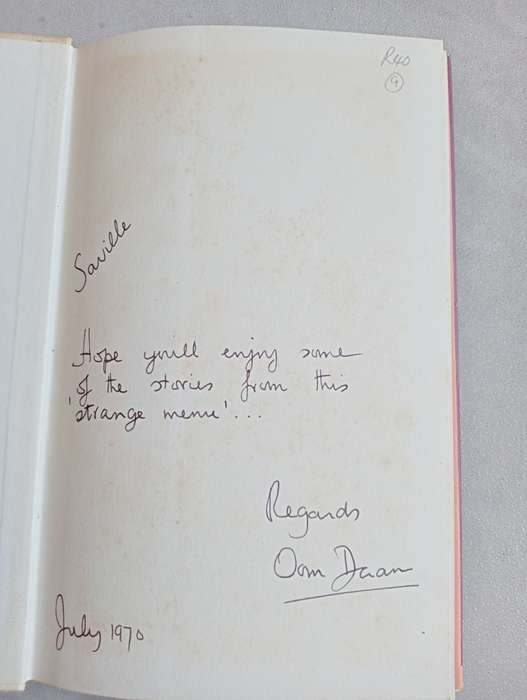 R40
9
Saville
Hope you'll enjoy some
of the stories from this
'strange menu'...
Regards
Oom Daan
July 1970